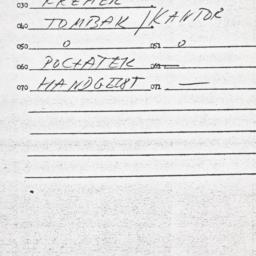 030 KREMER
040 TOMBAK / KANTOR
050 0 051 0
060 POCHATEK 061 —
070 HANDGEIST 071 —